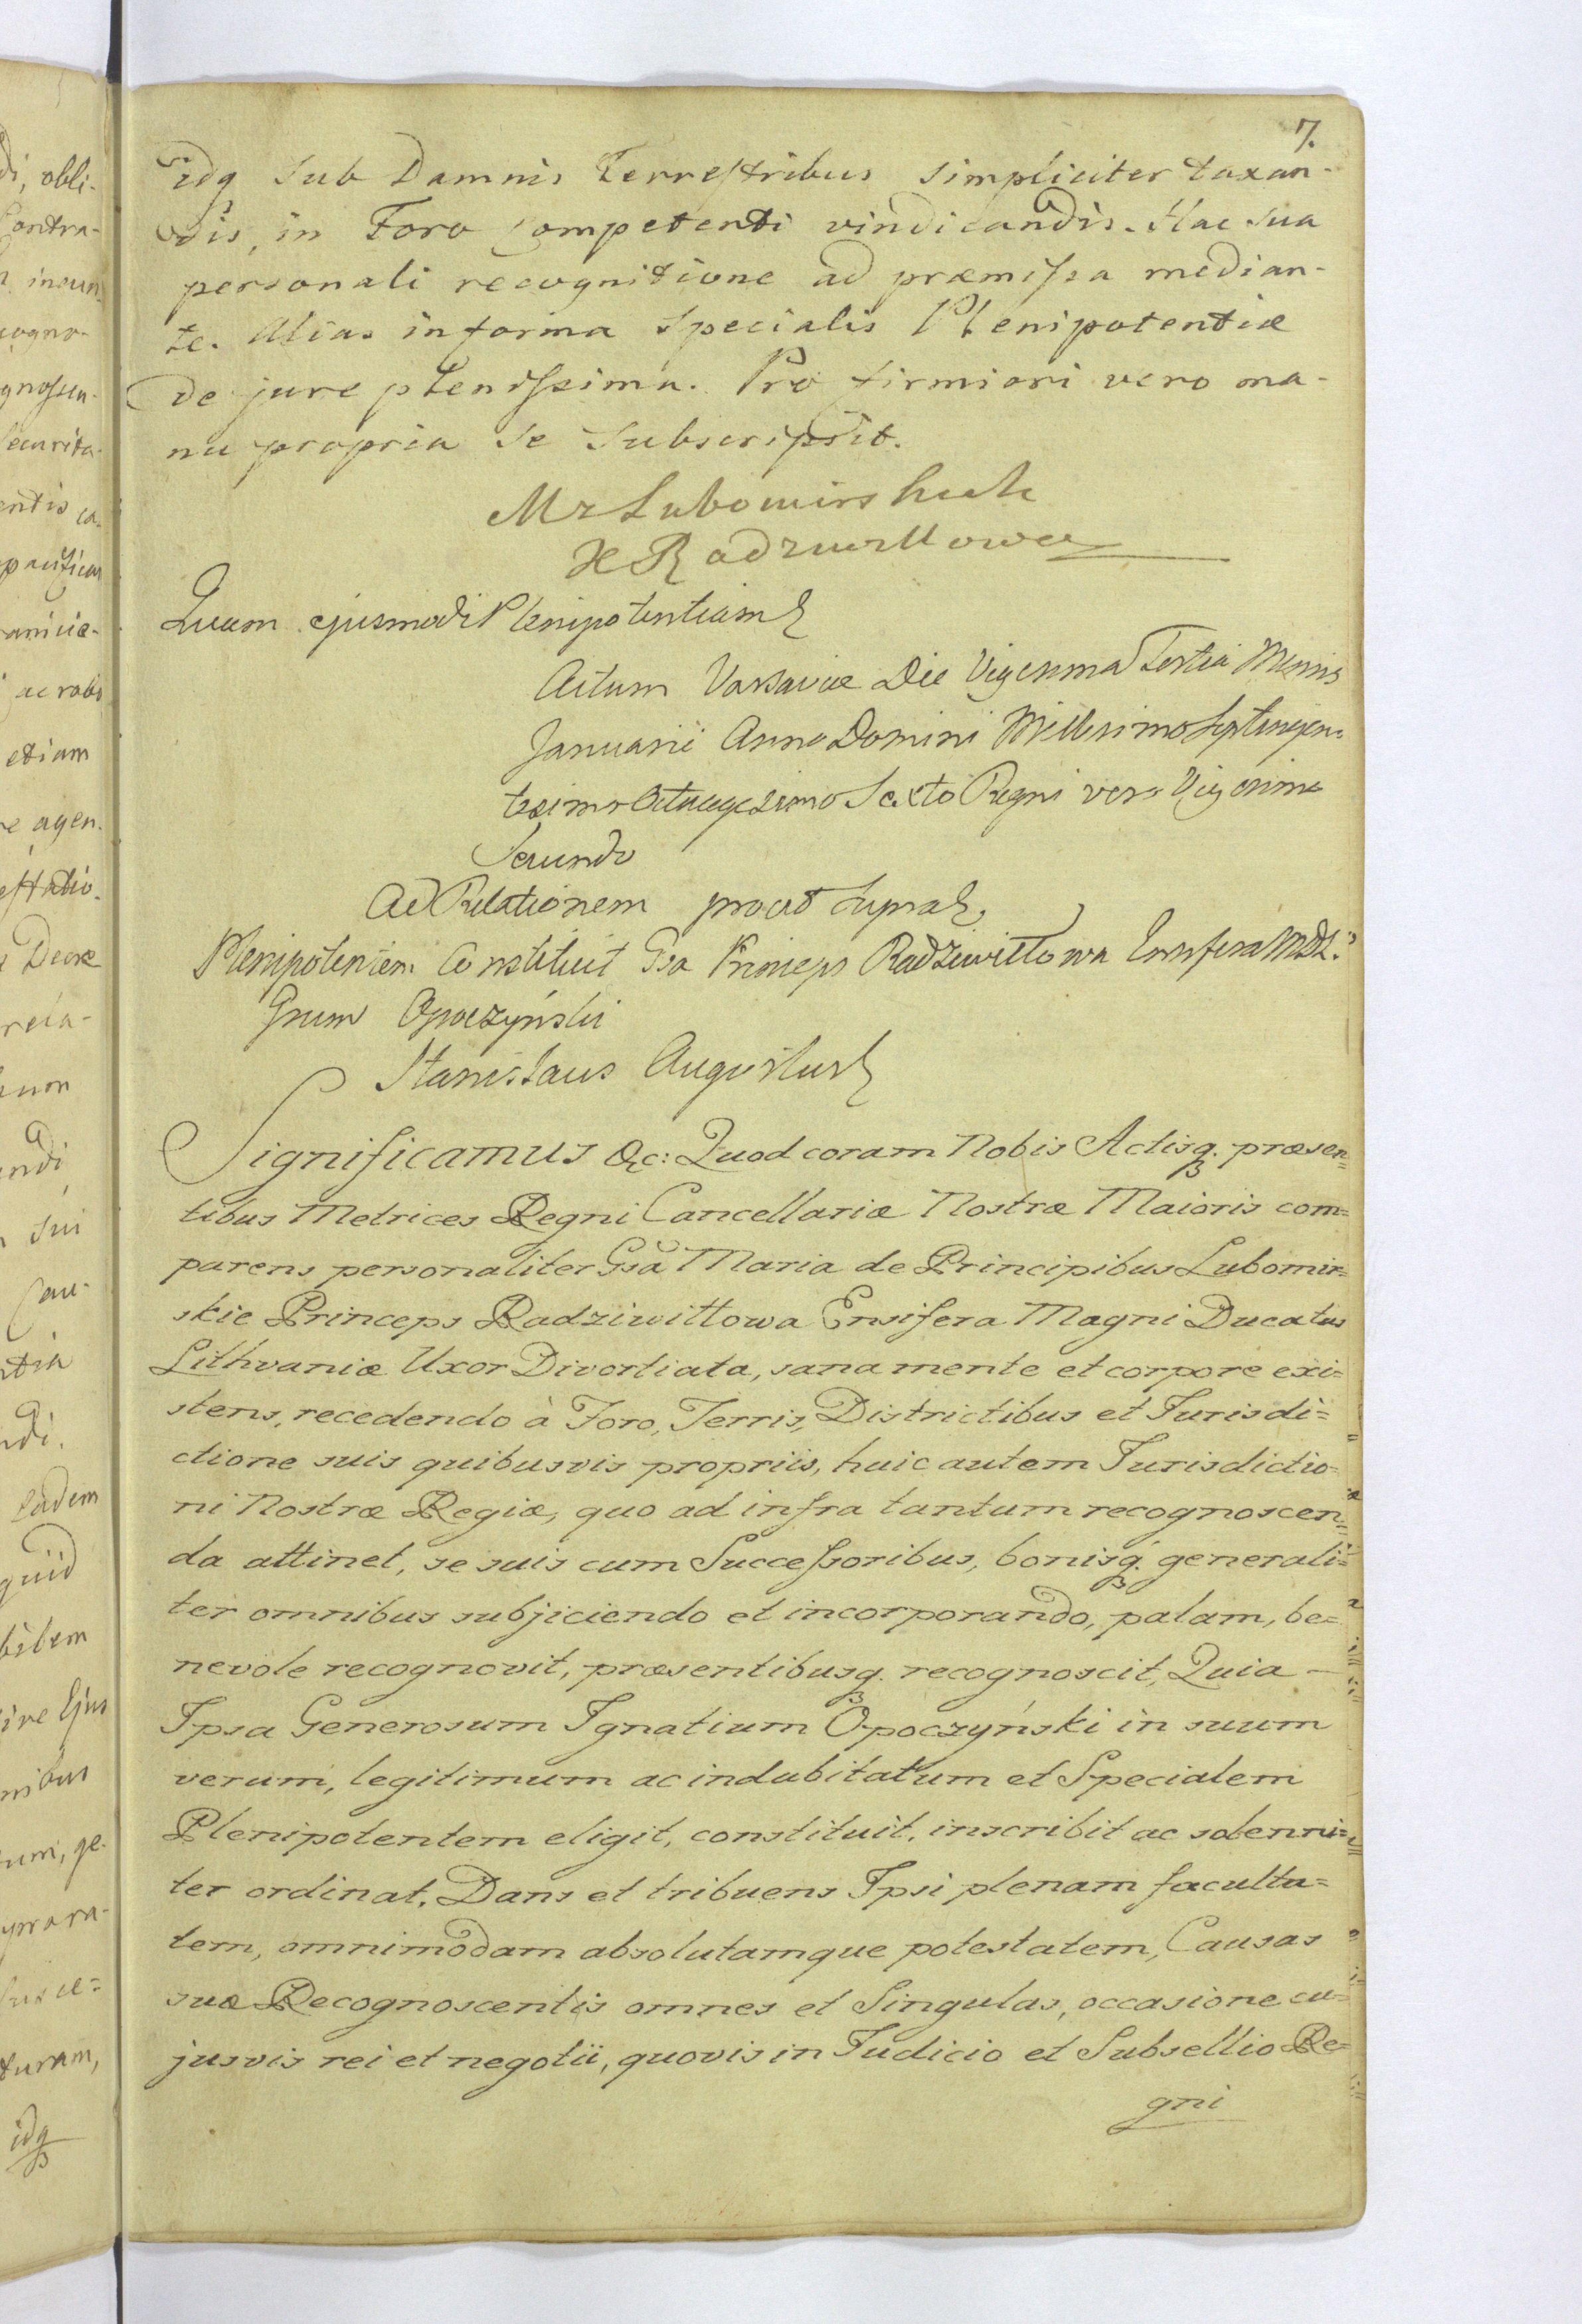 7.
idq sub Damnis Terrestribus simpliciter taxan-
dis, in Foro Competenti vindicandis. Hac sua
personali recognitione ad præmissa median-
te. Alias in forma specialis Plenipotentiæ
de jure plenissima. Pro firmiori vero ma-
nu propria se subscripsit.
Lubomirskich
X Radziwiłłowa
Quam ejusmodi Plenipotentiam
Actum Varsaviæ Die Vigesima Tertia Mensis
Januarii Anno Domini Millesimo Septingen-
tesimo Octuagesimo Sexto Regni vero Vigesimo
Secundo
Ad Relationem prout supra
Plenipotentem Constituit Gsa Princeps Radziwiłłowa Ensifera MDL:
Gnum Opoczyński
Stanislaus Augustus
Significamus &c: Quod coram Nobis Actisq. præsen=
tibus Metrices Regni Cancellariæ Nostræ Maioris com=
parens personaliter Gsa Maria de Principibus Lubomir=
skie Princeps Radziwiłłowa Ensifera Magni Ducatus
Lithvaniæ Uxor Divortiata, sana mente et corpore exi=
stens, recedendo à Foro, Terris, Districtibus et Jurisdi=
ctione suis quibusvis propriis, huic autem Jurisdictio=
ni Nostræ Regiæ, quo ad infra tantum recognoscen=
da attinet, se suis cum Successoribus, bonisq. generali=
ter omnibus subjiciendo et incorporando, palam, be=
nevole recognovit, præsentibusq. recognoscit, Quia –
Ipsa Generosum Ignatium Opoczyński in suum
verum, legitimum ac indubitatum et Specialem
Plenipotentem eligit, constituit, inscribit ac solenni=
ter ordinat. Dans et tribuens Ipsi plenam faculta=
tem, omnimodam absolutamque potestatem, Causas
suæ Recognoscentis omnes et Singulas, occasione cu=
jusvis rei et negotii, quovis in Judicio et Subsellio Re=
gni